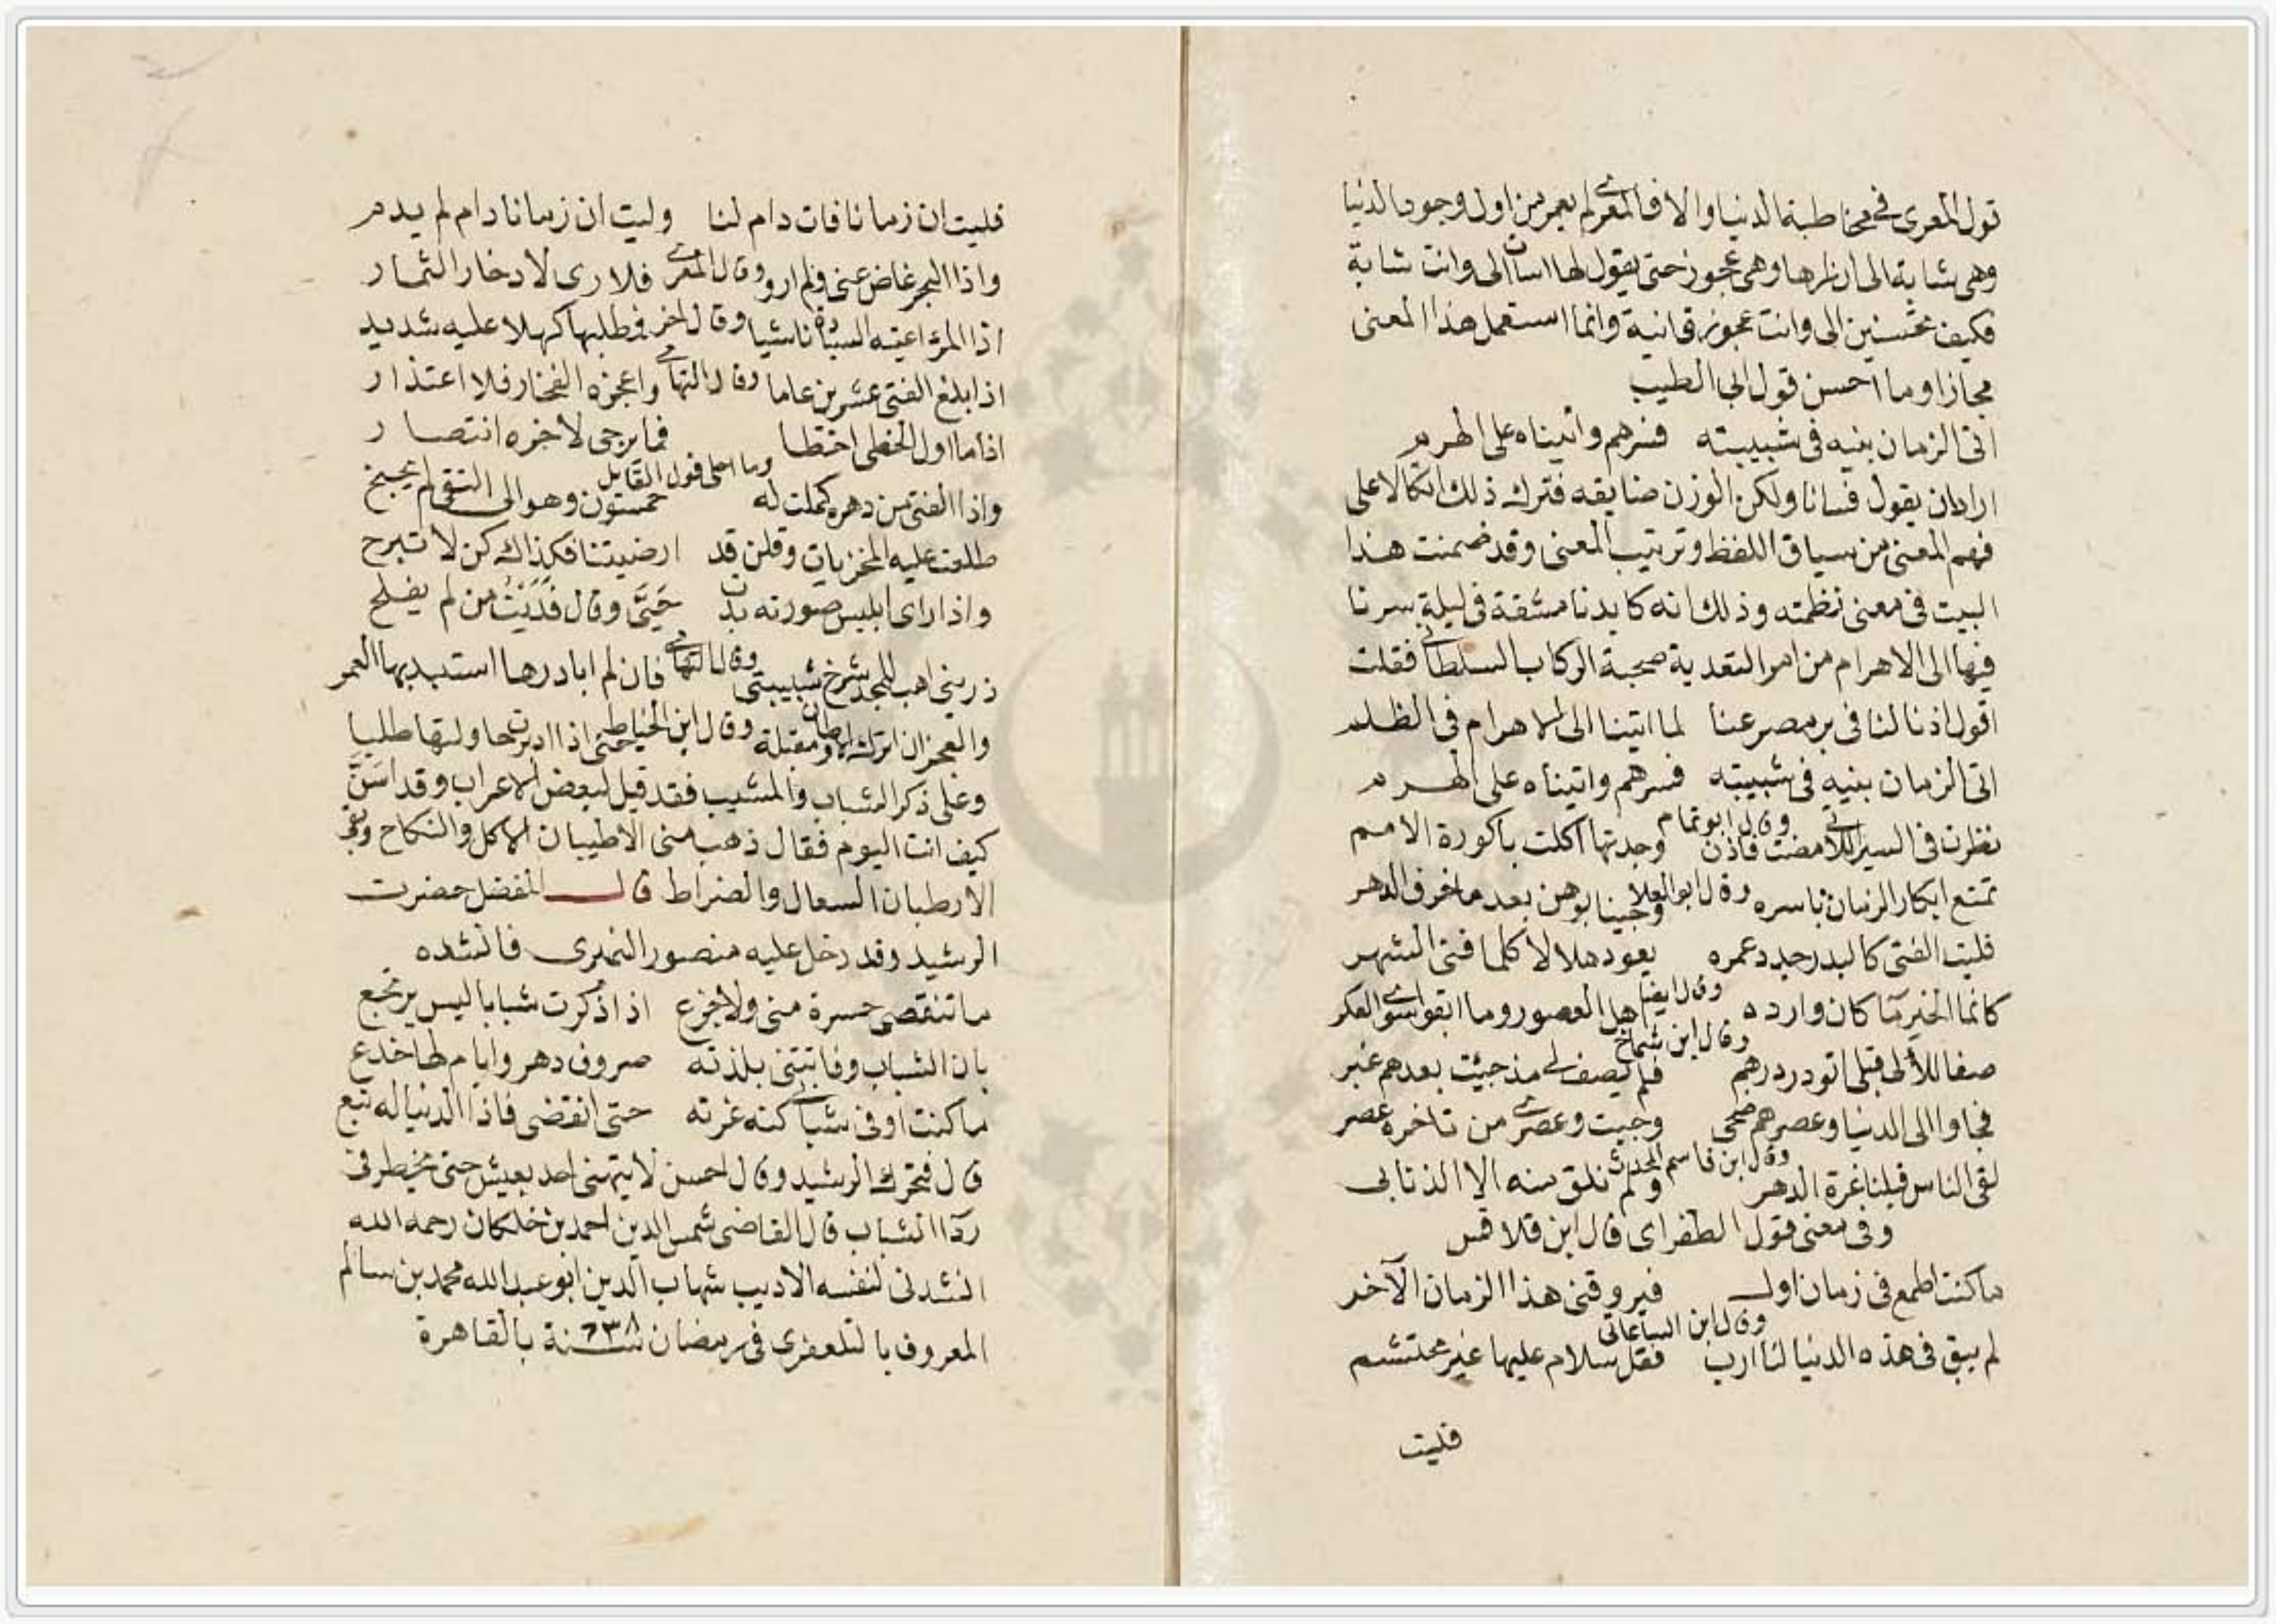 قول المعرى فى مخاطبة الدنيا والا فالمعرى لم يعمر من اول وجود الدنيا
وهى شابة الى ان راها وهى عجوز حتى يقول لها اسات الى وانت شابة
فكيف تحسنين الى وانت عجوز فانية وانما استعمل هذا المعنى
مجازا وما احسن قول ابى الطيب
اتى الزمان بنيه فى شبيبته فسرهم واتيناه على الهرم
اراد ان يقول فسانا ولكن الوزن ضايقه فترك ذلك اتكالا على
فهم المعنى من سياق اللفظ وترتيب المعنى وقد ضمنت هذا
البيت فى معنى نظمته وذلك انه كابدنا مشقة فى ليلة سرنا
فيها الى الاهرام من امر التعدية صحبة الركاب السلطانى فقلت
اقول اذ نالنا فى بر مصر عنا لما اتينا الى الاهرام فى الظلم
اتى الزمان بنيه فى شبيبته فسرهم واتيناه على الهرم
وقال ابو تمام
نظرت فى السير اللاتى مضت فاذن وجدتها اكلت باكورة الامم
وقال ابو العلا
تمتع ابكار الزمان باسره وجينا بوهن بعد ما خرف الدهر
فليت الفتى كالبدر جدد عمره يعود هلالا كلما فنى الشهر
وقال ايضا
كانما الخير ما كان وارده اهل العصور وما ابقوا سوى العكر
وقال ابن شماخ
صفا للالى قبلى اتو در درهم فلم يصف لى مذ جيئت بعدهم غبر
فجاوا الى الدنيا وعصرهم ضحى وجيت وعصرى من تاخره عصر
وقال ابن قاسم المحدث
لقى الناس قبلنا غرة الدهر ولم نلق منه الا الذنابى
وفى معنى قول الطغراى قال ابن قلاقس
ما كنت اطمع فى زمان اول فيروقنى هذا الزمان الآخر
وقال ابن الساعاتى
لم يبق فى هذه الدنيا لنا ارب فقل سلام عليها غير محتشم
فليت
فليت ان زمانا فات دام لنا وليت ان زمانا دام لم يدم
وقال المعرى
واذا البحر غاض عنى ولم ارو فلا رى لادخار الثمار
وقال اخر
اذا المرؤ اعيته السيادة ناشيا فمطلبها كهلا عليه شديد
وقال التهامى
اذا بلغ الفتى عشرين عاما واعجزه الفخار فلا اعتذار
اذا ما اول الخطى اخطا فما يرجى لاخره انتصار
وما احلى قول القايل
واذا الفتى من دهره كملت له خمسون وهو الى التقى لم يجنح
طلعت عليه المخزيات وقلن قد ارضيتنا فكذاك كن لا تبرح
واذا راى ابليس صورته بدت حيى وقال فديت من لم يفلح
وقال التهامى
ذرينى اهب للمجد شرخ شبيبتى فان لم ابادرها استبد بها العمر
وقال ابن الخياط
والعجز ان اترك الاوطان مقبلة حتى اذا ادبرت حاولتها طلبا
وعلى ذكر الشباب والمشيب فقد قيل لبعض الاعراب وقد اسن
كيف انت اليوم فقال ذهب منى الاطيبان الاكل والنكاح وبقى
الارطبان السعال والضراط قال المفضل حضرت
الرشيد وقد دخل عليه منصور النمرى فانشده
ما تنقضى حسرة منى ولا جزع اذا ذكرت شبابا ليس يرتجع
بان الشباب وفاتتنى بلذته صروف دهر وايام لها خدع
ما كنت اوفى شبابى كنه غرته حتى انقضى فاذا الدنيا له تبع
قال فتحرك الرشيد وقال احسن لا يتهنى احد بعيش حتى يخطر فى
ردا الشباب قال القاضى شمس الدين احمد بن خلكان رحمه الله
انشدنى لنفسه الاديب شهاب الدين ابو عبد الله محمد بن سالم
المعروف بالتلعفرى فى رمضان سنة ٦٣٨ بالقاهرة